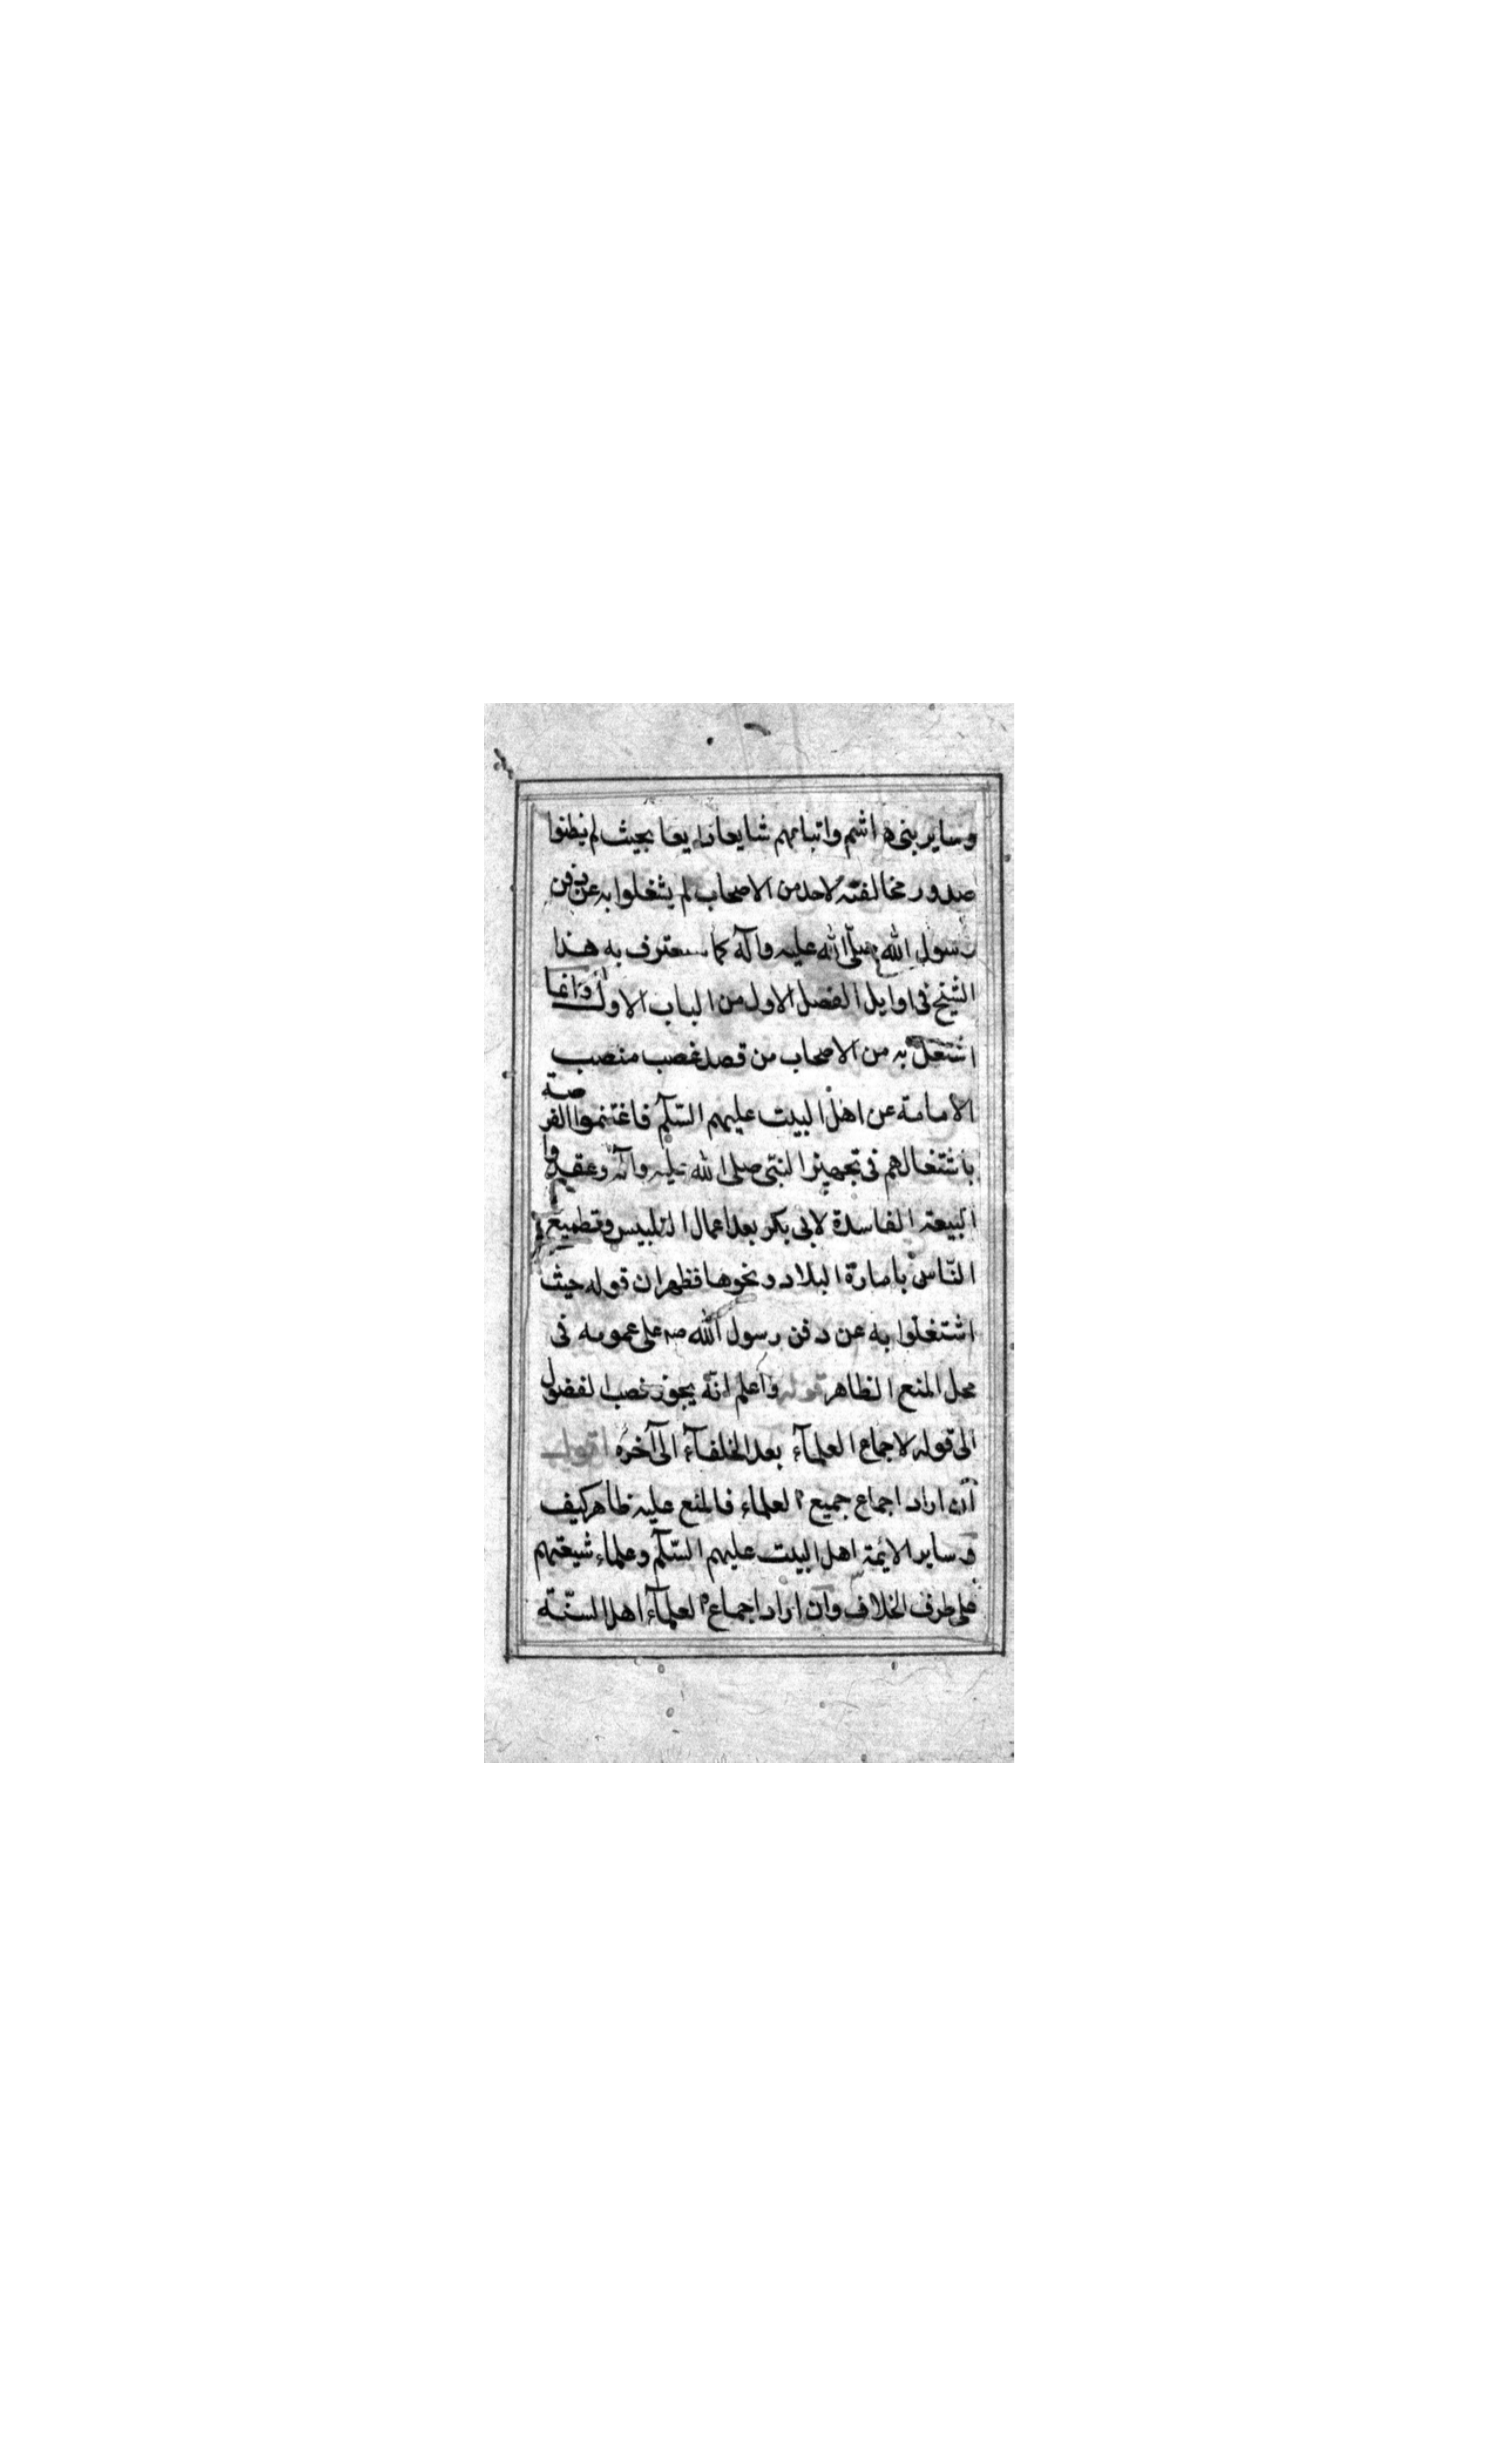 وساير بنى هاشم واتباعهم شايعا ذايعا بحيث لم يظنوا
صدور مخالفته لاحد من الاصحاب لم يشغلوا به عن دفن
رسول الله صلى الله عليه وآله كما سيعترف به هذا
الشيخ فى اوايل الفصل الاول من الباب الاول وانما
اشتغل به من الاصحاب من قصد غصب منصب
الامامة عن اهل البيت عليهم السّلم فاغتنموا الفرصة
باشتغالهم فى تجهيز النبى صلى الله عليه وآله وعقدوا
البيعة الفاسدة لابى بكر بعد اعمال التلبيس وتطميع
النّاس بامارة البلاد ونحوها فظهر ان قوله حيث
اشتغلوا به عن دفن رسول الله صه على عمومه فى
محل المنع الظاهر قوله واعلم انّه يجوز نصب المفضول
الى قوله لاجماع العلمآء بعد الخلفآء الى آخره اقول
ان اراد اجماع جميع العلماء فالمنع عليه ظاهر كيف
و ساير الائمة اهل البيت عليهم السّلم وعلماء شيعتهم
على طرف الخلاف وان اراد اجماع العلمآء اهل السنّة